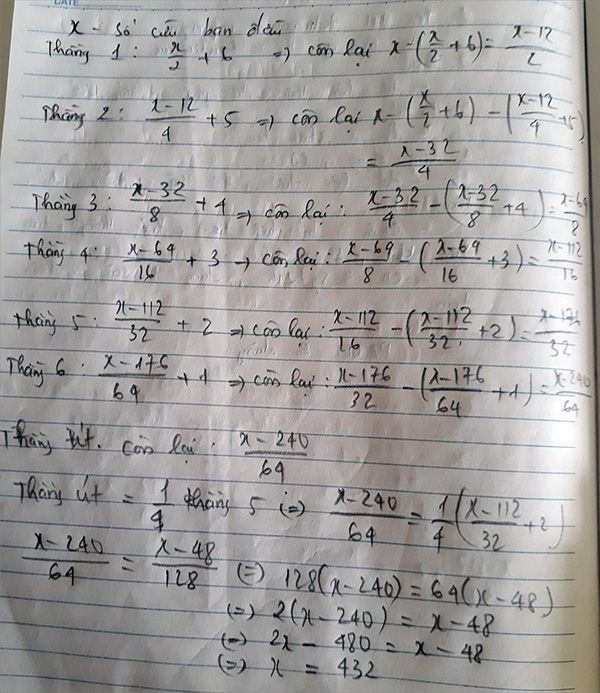 x - số cừu ban đầu
Thằng 1 : x/2 + 6 => còn lại x - (x/2 + 6) = (x-12)/2
Thằng 2 : (x-12)/4 + 5 => còn lại x - (x/2 + 6) - ((x-12)/4 + 5)
= (x-32)/4
Thằng 3 : (x-32)/8 + 4 => còn lại : (x-32)/4 - ((x-32)/8 + 4) = (x-64)/8
Thằng 4 : (x-64)/16 + 3 -> còn lại : (x-64)/8 - ((x-64)/16 + 3) = (x-112)/16
Thằng 5 : (x-112)/32 + 2 => còn lại : (x-112)/16 - ((x-112)/32 + 2) = (x-176)/32
Thằng 6 : (x-176)/64 + 1 => còn lại : (x-176)/32 - ((x-176)/64 + 1) = (x-240)/64
Thằng út. còn lại : (x-240)/64
Thằng út = 1/4 thằng 5 (=) (x-240)/64 = 1/4((x-112)/32 + 2)
(x-240)/64 = (x-48)/128 (=) 128(x-240) = 64(x-48)
(=) 2(x-240) = x-48
(=) 2x - 480 = x-48
(=) x = 432